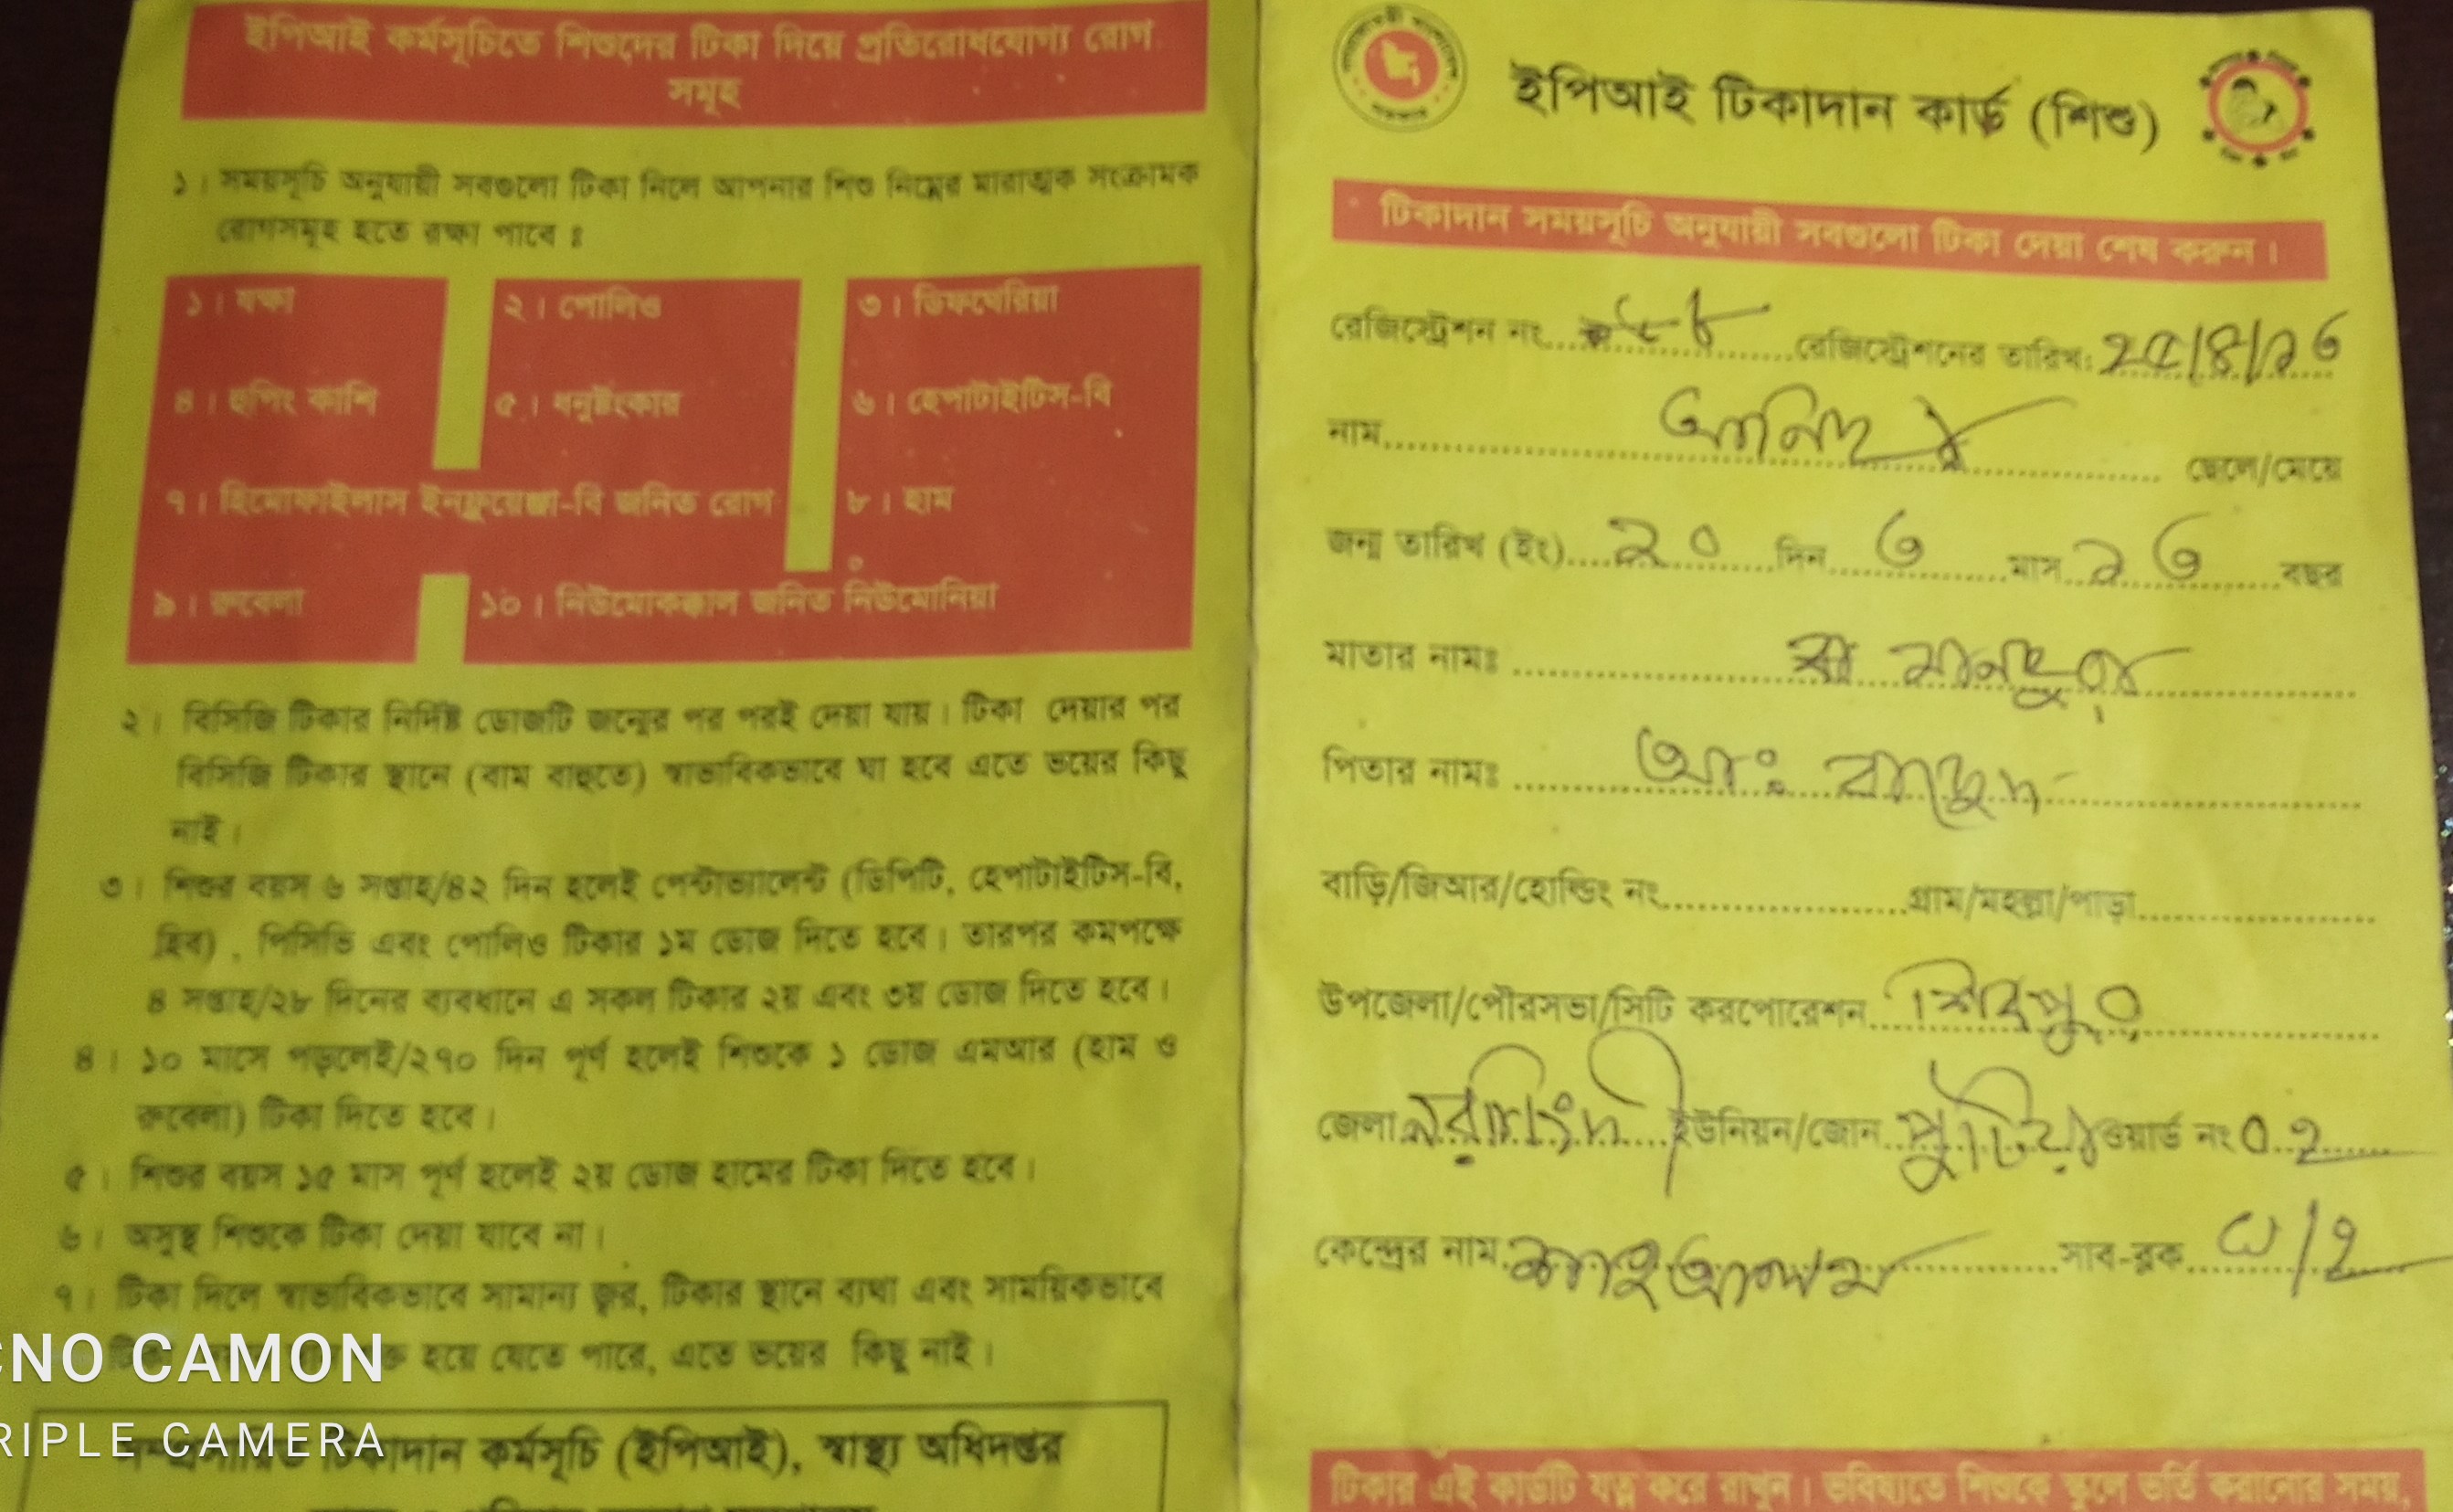 ইপিআই কর্মসূচিতে শিশুদের টিকা দিয়ে প্রতিরোধযোগ্য রোগ
সমূহ
১। সময়সূচি অনুযায়ী সবগুলো টিকা নিলে আপনার শিশু নিম্নের মারাত্মক সংক্রামক
রোগসমূহ হতে রক্ষা পাবে ঃ
১। যক্ষা ২। পোলিও ৩। ডিফথেরিয়া
৪। হুপিং কাশি ৫। ধনুষ্টংকার ৬। হেপাটাইটিস-বি
৭। হিমোফাইলাস ইনফ্লুয়েঞ্জা-বি জনিত রোগ ৮। হাম
৯। রুবেলা ১০। নিউমোকক্কাল জনিত নিউমোনিয়া
২। বিসিজি টিকার নির্দিষ্ট ডোজটি জন্মের পর পরই দেয়া যায়। টিকা দেয়ার পর
বিসিজি টিকার স্থানে (বাম বাহুতে) স্বাভাবিকভাবে ঘা হবে এতে ভয়ের কিছু
নাই।
৩। শিশুর বয়স ৬ সপ্তাহ/৪২ দিন হলেই পেন্টাভ্যালেন্ট (ডিপিটি, হেপাটাইটিস-বি,
হিব) , পিসিভি এবং পোলিও টিকার ১ম ডোজ দিতে হবে। তারপর কমপক্ষে
৪ সপ্তাহ/২৮ দিনের ব্যবধানে এ সকল টিকার ২য় এবং ৩য় ডোজ দিতে হবে।
৪। ১০ মাসে পড়লেই/২৭০ দিন পূর্ণ হলেই শিশুকে ১ ডোজ এমআর (হাম ও
রুবেলা) টিকা দিতে হবে।
৫। শিশুর বয়স ১৫ মাস পূর্ণ হলেই ২য় ডোজ হামের টিকা দিতে হবে।
৬। অসুস্থ শিশুকে টিকা দেয়া যাবে না।
৭। টিকা দিলে স্বাভাবিকভাবে সামান্য জ্বর, টিকার স্থানে ব্যথা এবং সাময়িকভাবে
হয়ে যেতে পারে, এতে ভয়ের কিছু নাই।
টিকাদান কর্মসূচি (ইপিআই), স্বাস্থ্য অধিদপ্তর
CNO CAMON
RIPLE CAMERA
ইপিআই টিকাদান কার্ড (শিশু)
টিকাদান সময়সূচি অনুযায়ী সবগুলো টিকা দেয়া শেষ করুন।
রেজিস্ট্রেশন নং রেজিস্ট্রেশনের তারিখ: ২৫/৪/১৩
নাম ছেলে/মেয়ে
জন্ম তারিখ (ইং) ২০ দিন ৩ মাস ১৩ বছর
মাতার নামঃ
পিতার নামঃ
বাড়ি/জিআর/হোল্ডিং নং গ্রাম/মহল্লা/পাড়া
উপজেলা/পৌরসভা/সিটি করপোরেশন শিবপুর
জেলা নরসিংদী ইউনিয়ন/জোন পুটিয়া ওয়ার্ড নং ০২
কেন্দ্রের নাম সাব-ব্লক
টিকার এই কার্ডটি যত্ন করে রাখুন। ভবিষ্যতে শিশুকে স্কুলে ভর্তি করানোর সময়,